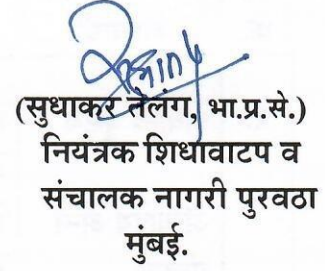 (सुधाकर तेलंग, भा.प्र.से.)
नियंत्रक शिधावाटप व
संचालक नागरी पुरवठा
मुंबई.